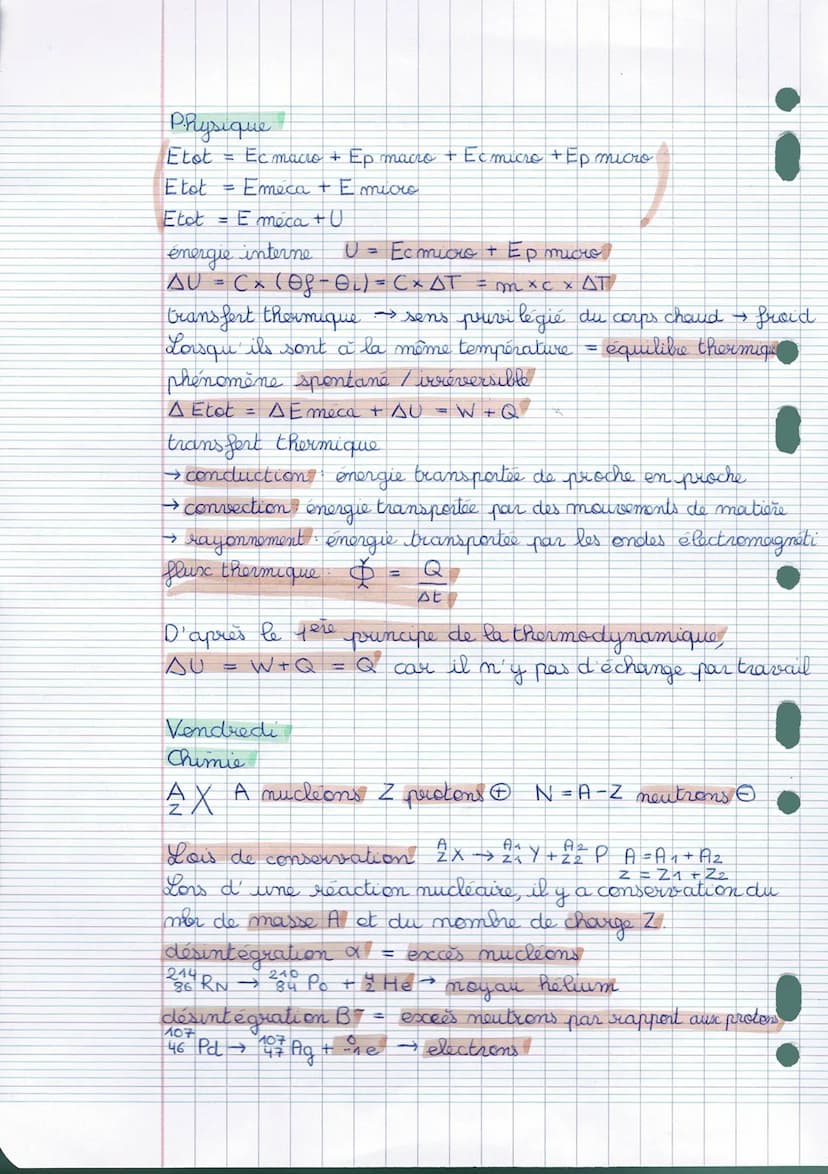 Physique
Etot = Ec macro + Ep macro + Ec micro + Ep micro
Etot = Eméca + E micro
Etot = E méca + U
énergie interne U = Ec micro + Ep micro
ΔU = C x (θf - θi) = C x ΔT = m x c x ΔT
transfert thermique → sens privilégié du corps chaud → froid
Lorsqu'ils sont à la même température = équilibre thermiq
phénomène spontané / irréversible
Δ Etot = ΔE méca + ΔU = W + Q
transfert thermique
→ conduction : énergie transportée de proche en proche
→ convection : énergie transportée par des mouvements de matière
→ rayonnement : énergie transportée par les ondes électromagnéti
flux thermique : Φ = Q / Δt
D'après le 1ère principe de la thermodynamique,
ΔU = W + Q = Q car il n'y pas d'échange par travail
Vendredi
Chimie
A Z X A nucléons Z protons ⊕ N = A - Z neutrons ⊖
Lois de conservation A Z X → A1 Z1 Y + A2 Z2 P A = A1 + A2
Z = Z1 + Z2
Lors d'une réaction nucléaire, il y a conservation du
nbr de masse A et du nombre de charge Z.
désintégration α = excès nucléons
214 86 RN → 210 84 Po + 4 2 He → noyau hélium
désintégration B⁻ = excès neutrons par rapport aux protons
107 46 Pd → 107 47 Ag + 0 -1 e → electrons